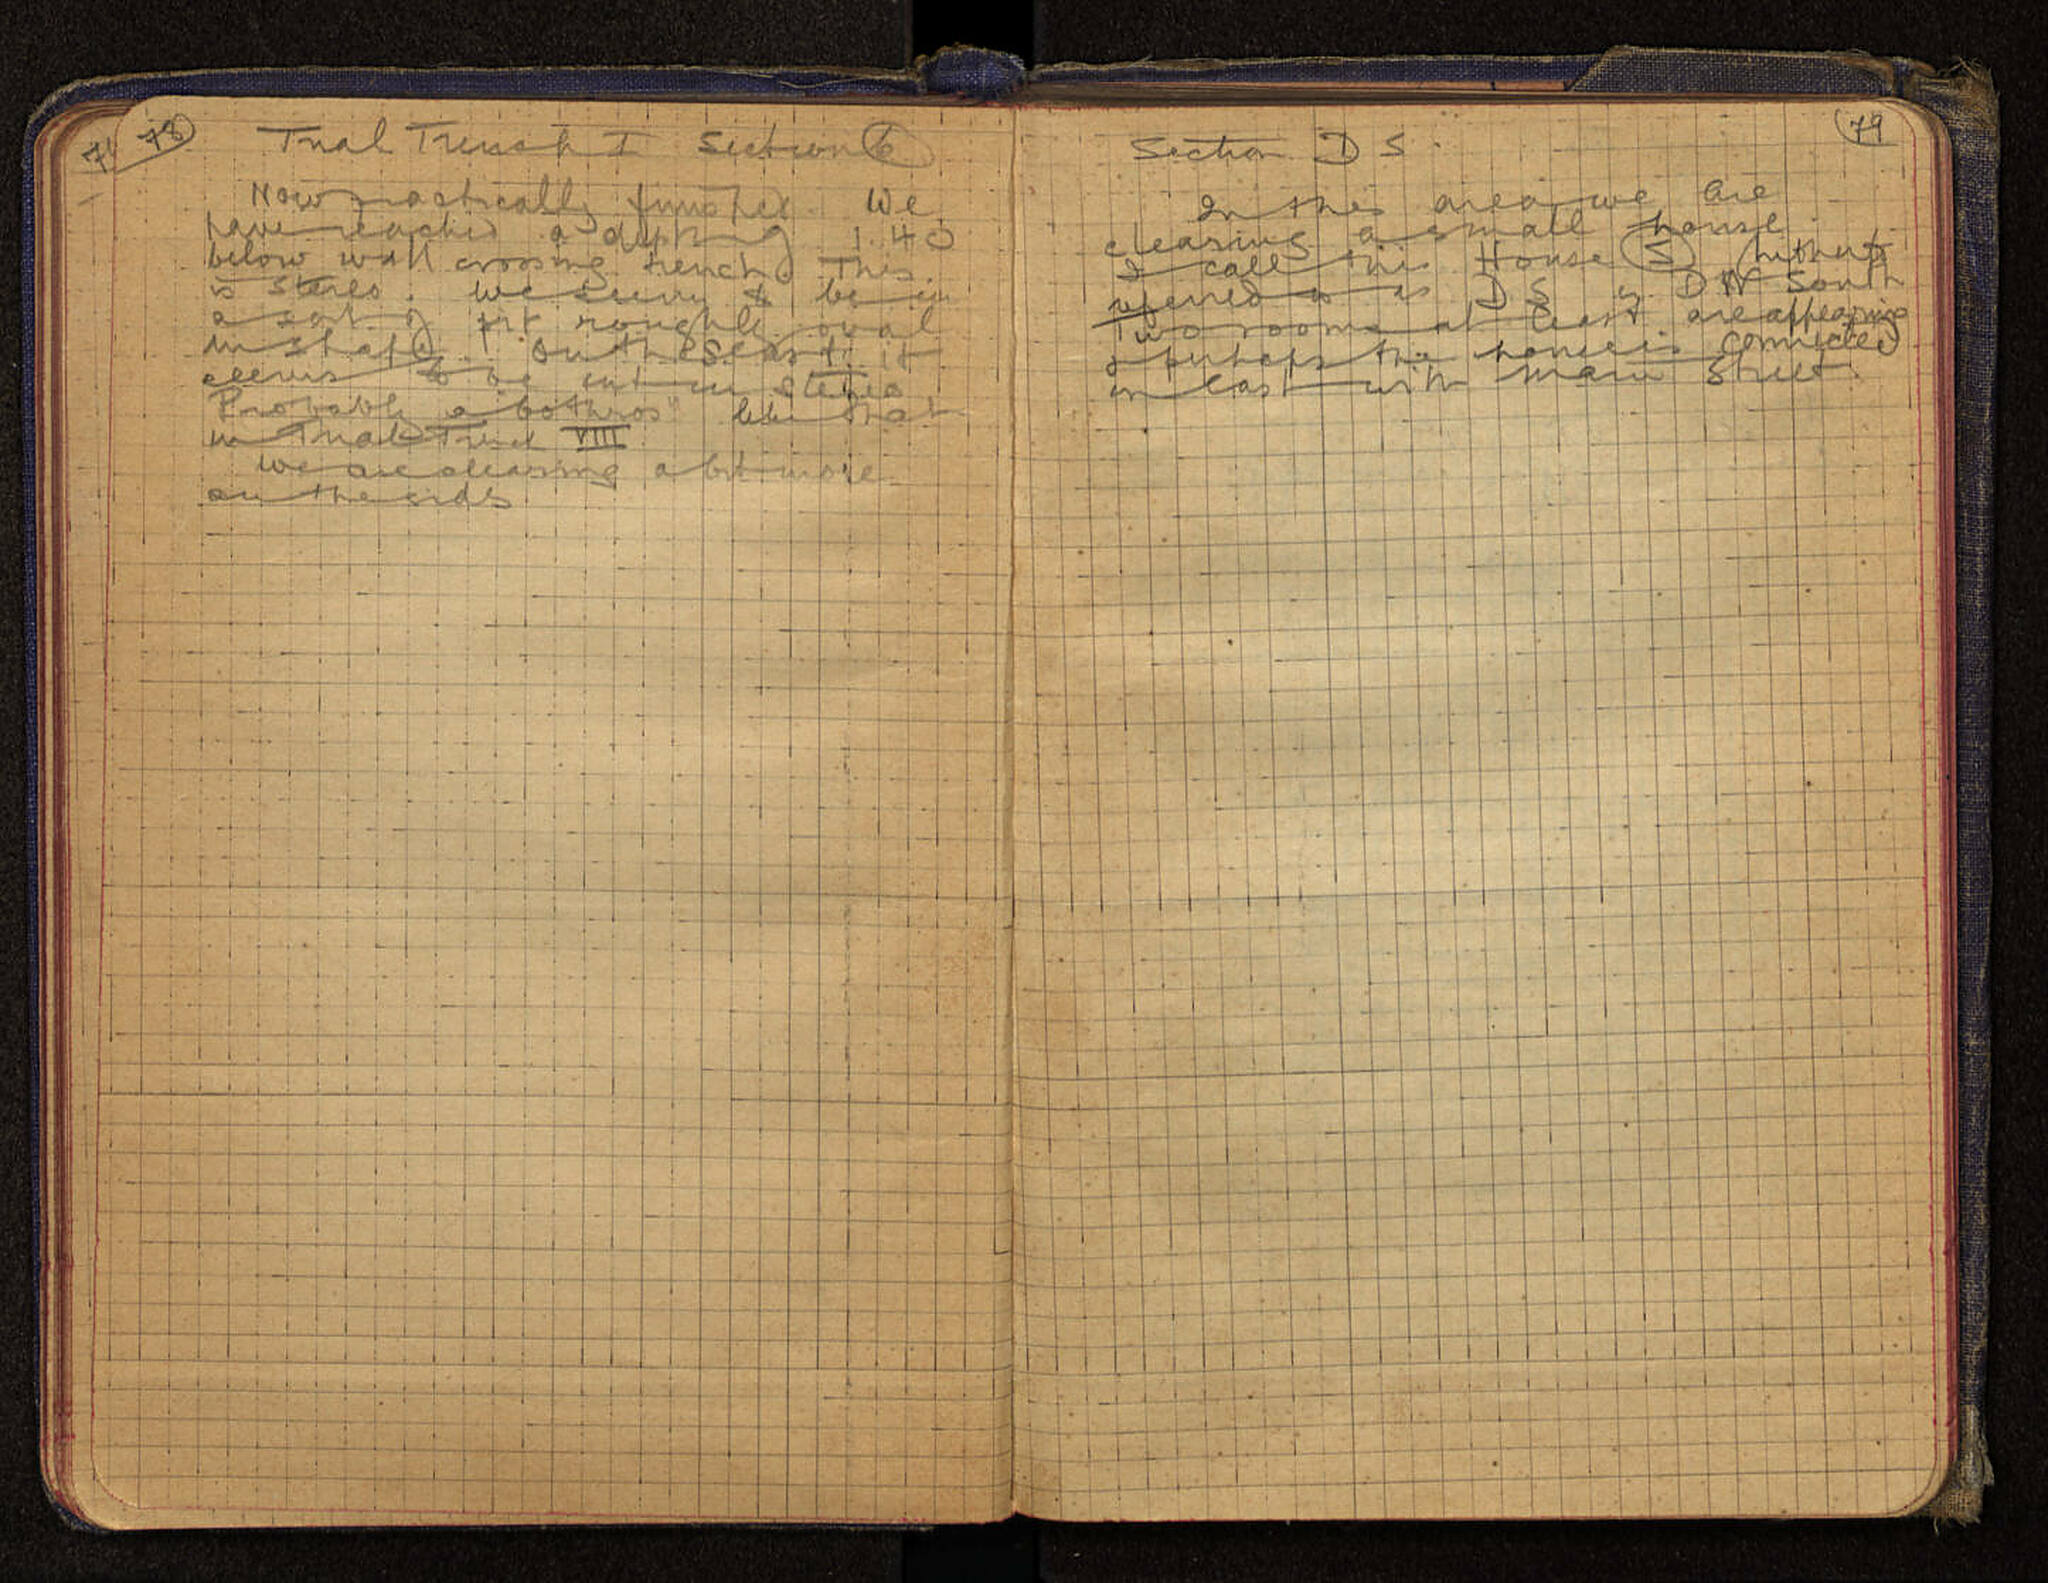 78
Trial Trench I Section 6
Now practically finished. We
have reached a depth of 1.40
below wall crossing trench. This
is stereo. We seem to be in
a sort of pit roughly oval
in shape. On the S. east it
seems to be cut in stereo
Probably a "bothros" like that
in Trial Trench VIII
We are clearing a bit more
on the sides
79
Section D S.
In this area we are
clearing a small house.
I call this House S hitherto
referred to as D S or DW South
Two rooms at least are appearing
& perhaps the house is connected
on east with Main Street.